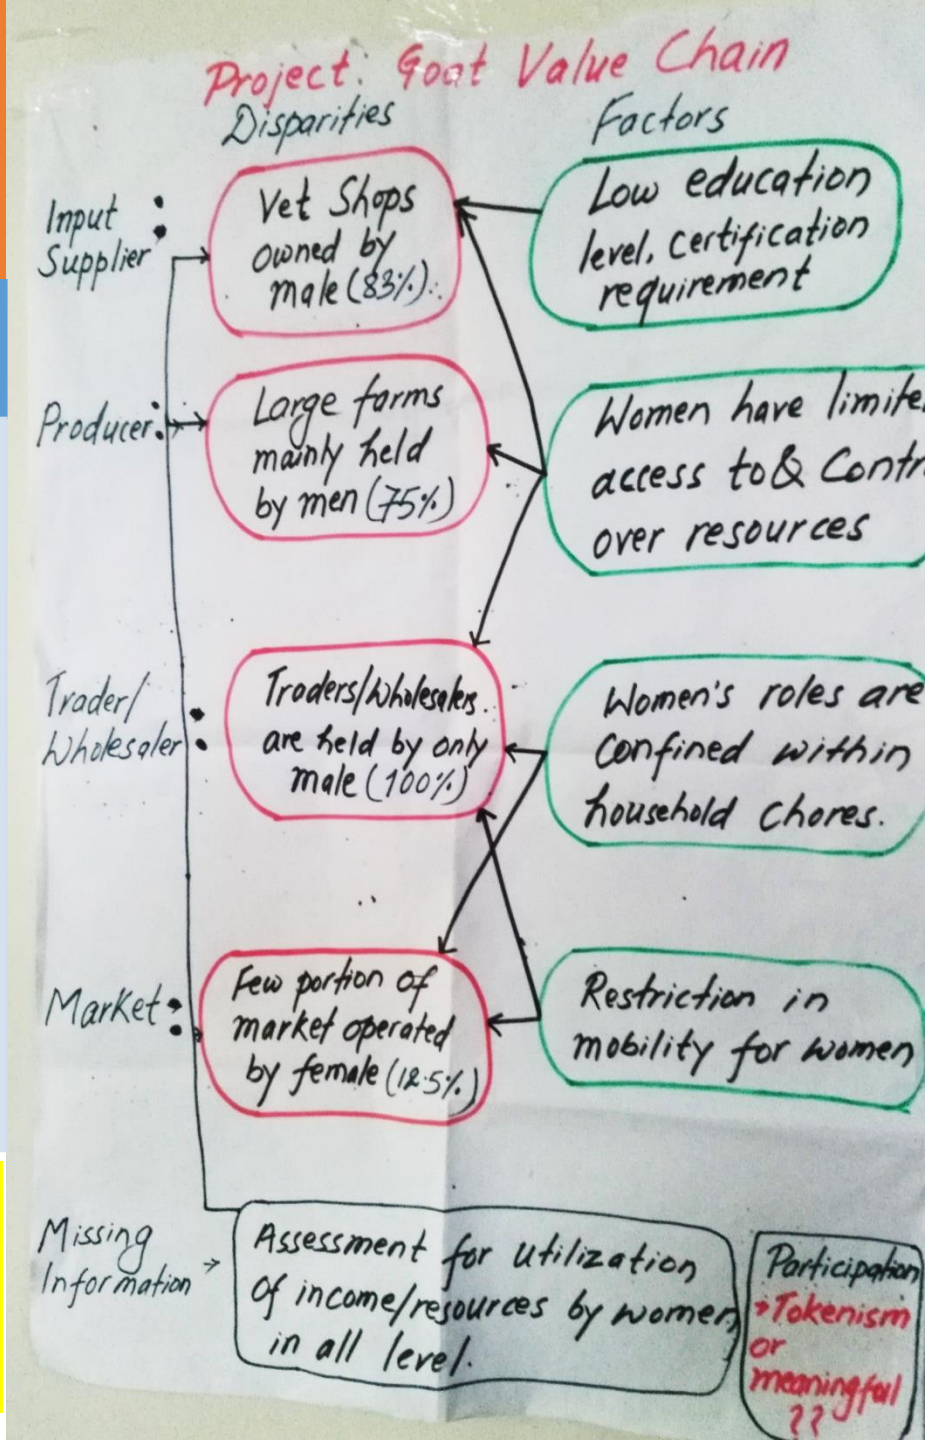 Project: Goat Value Chain
Disparities
Factors
Input
Supplier
Vet Shops
owned by
male (83%).
Low education
level, certification
requirement
Producer:
Large farms
mainly held
by men (75%)
Women have limite
access to & Contr
over resources
Trader/
Wholesaler:
Traders/Wholesalers.
are held by only
male (100%)
Women's roles are
confined within
household chores.
Market:
Few portion of
market operated
by female (12.5%)
Restriction in
mobility for women
Missing
Information →
Assessment for utilization
of income/resources by women
in all level.
Participation
→ Tokenism
or
meaningful
??